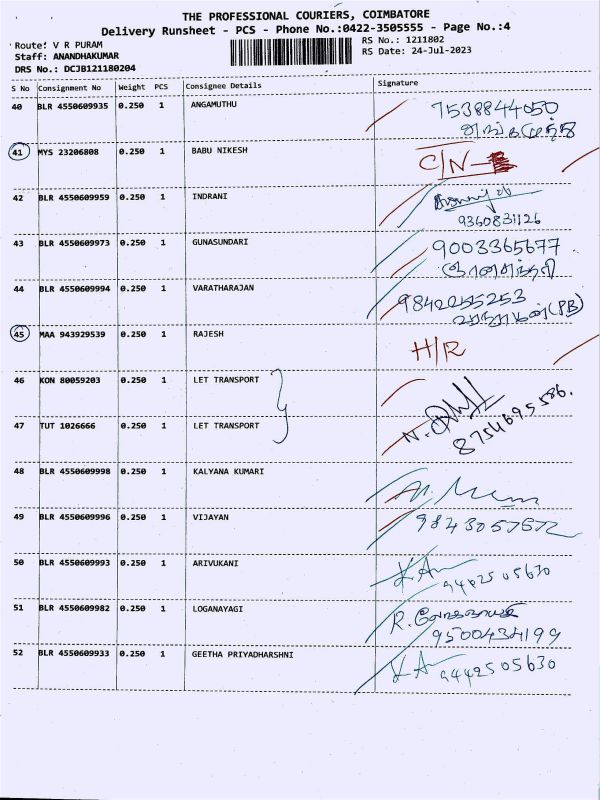 THE PROFESSIONAL COURIERS, COIMBATORE
Delivery Runsheet - PCS - Phone No.:0422-3505555 - Page No.:4
Route: V R PURAM
Staff: ANANDHAKUMAR
DRS No.: DCJB121180204
RS No.: 1211802
RS Date: 24-Jul-2023
S No Consignment No Weight PCS Consignee Details Signature
40 BLR 4550609935 0.250 1 ANGAMUTHU 7538844050
அங்கமுத்து
41 MYS 23206808 0.250 1 BABU NIKESH C/N
42 BLR 4550609959 0.250 1 INDRANI
9360831126
43 BLR 4550609973 0.250 1 GUNASUNDARI 9003365677
44 BLR 4550609994 0.250 1 VARATHARAJAN 9842255253
(PB)
45 MAA 943929539 0.250 1 RAJESH H/R
46 KON 80059203 0.250 1 LET TRANSPORT
47 TUT 1026666 0.250 1 LET TRANSPORT 8754695586.
48 BLR 4550609998 0.250 1 KALYANA KUMARI
49 BLR 4550609996 0.250 1 VIJAYAN
50 BLR 4550609993 0.250 1 ARIVUKANI 9442505630
51 BLR 4550609982 0.250 1 LOGANAYAGI R. லோகநாயகி
9500434199
52 BLR 4550609933 0.250 1 GEETHA PRIYADHARSHNI 9442505630